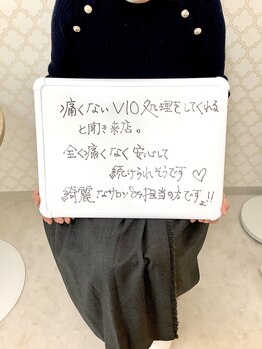 痛くないVIO処理をしてくれる
と聞き来店。
全く痛くなく安心して
続けられそうです♡
綺麗なサロン&担当の方ですよ!!